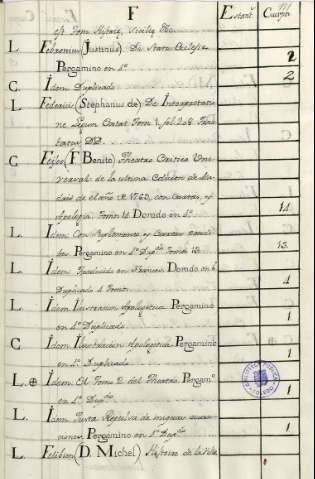 F Estant. Cuerpo
L. Febronius (Justinus). De Statu Eclesie
Pergamino en 4º 2
C. Idem Duplicado 2
L. Federicus (Stephanus de) De Interpretatio
ne Legum Extat Tom 1 fol. 208
C. Feijoo (F Benito) Theatro Critico Uni
versal de la ultima Edicion de Ma
drid del año de 1765, con Cartas, y
Apologia Tomos 14 Dorado en 4º 14
L. Idem Con Suplemento, y Cartas
Pergamino en 4º 13
L. Idem Traducido en Frances Dorado en 8
Duplicado 4 Tomos 4
L. Idem Ilustracion Apologetica Pergamino
en 4º Duplicado 1
C. Idem Ilustracion Apologetica Pergamino
en 4º Duplicado 1
L. ⊕ Idem El Tomo 2 del Theatro Pergamº
en 4º 1
L. Idem Justa Repulsa de iniquas acusa
ciones Pergamino en 4º 1
L. Felibien (D. Michel) Histoire de la Ville